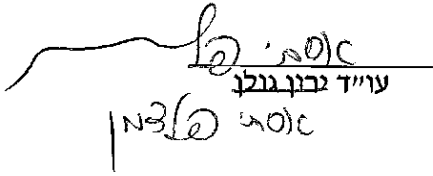 אסתי פל
עו״ד ירון גולן
אסתי פלדמן